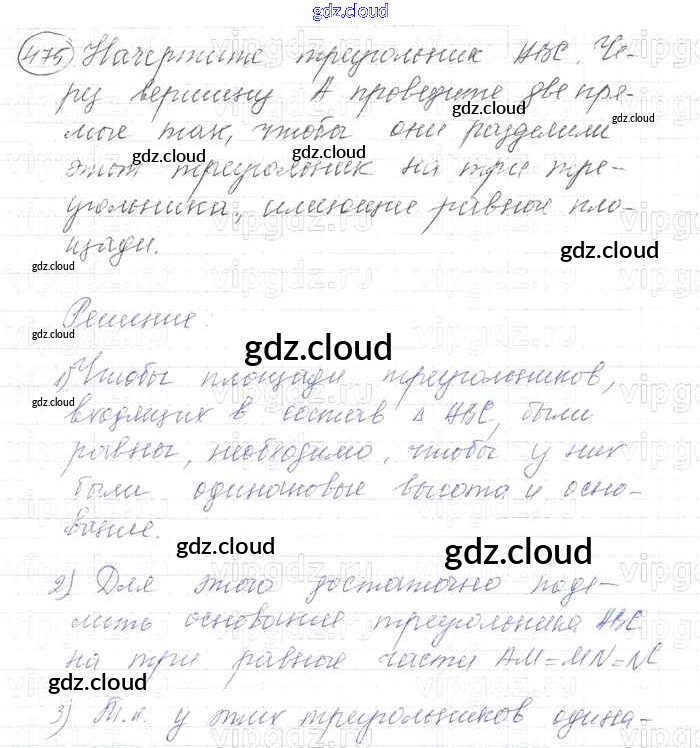 gdz.cloud
475 Начертите треугольник ABC. Че-
рез вершину A проведите две пря-
мые так, чтобы они разделили
gdz.cloud
gdz.cloud
gdz.cloud
gdz.cloud
этот треугольник на три тре-
угольника, имеющие равные пло-
щади.
gdz.cloud
gdz.cloud
Решение:
gdz.cloud
gdz.cloud
1) Чтобы площади треугольников,
gdz.cloud
входящих в состав Δ ABC, были
равны, необходимо, чтобы у них
были одинаковые высота и осно-
вание.
gdz.cloud
gdz.cloud
2) Для этого достаточно поде-
лить основание треугольника ABC
на три равные части AM=MN=NC
gdz.cloud
3) Т.к. у этих треугольников одина-
gdz.cloud